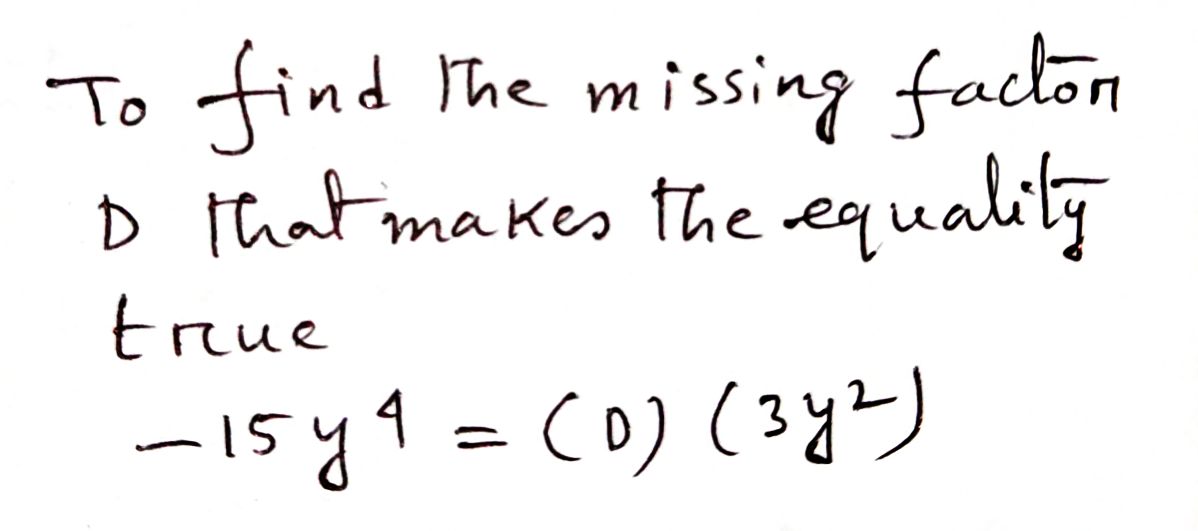 To find the missing factor
D that makes the equality
true
-15y⁴ = (D) (3y²)